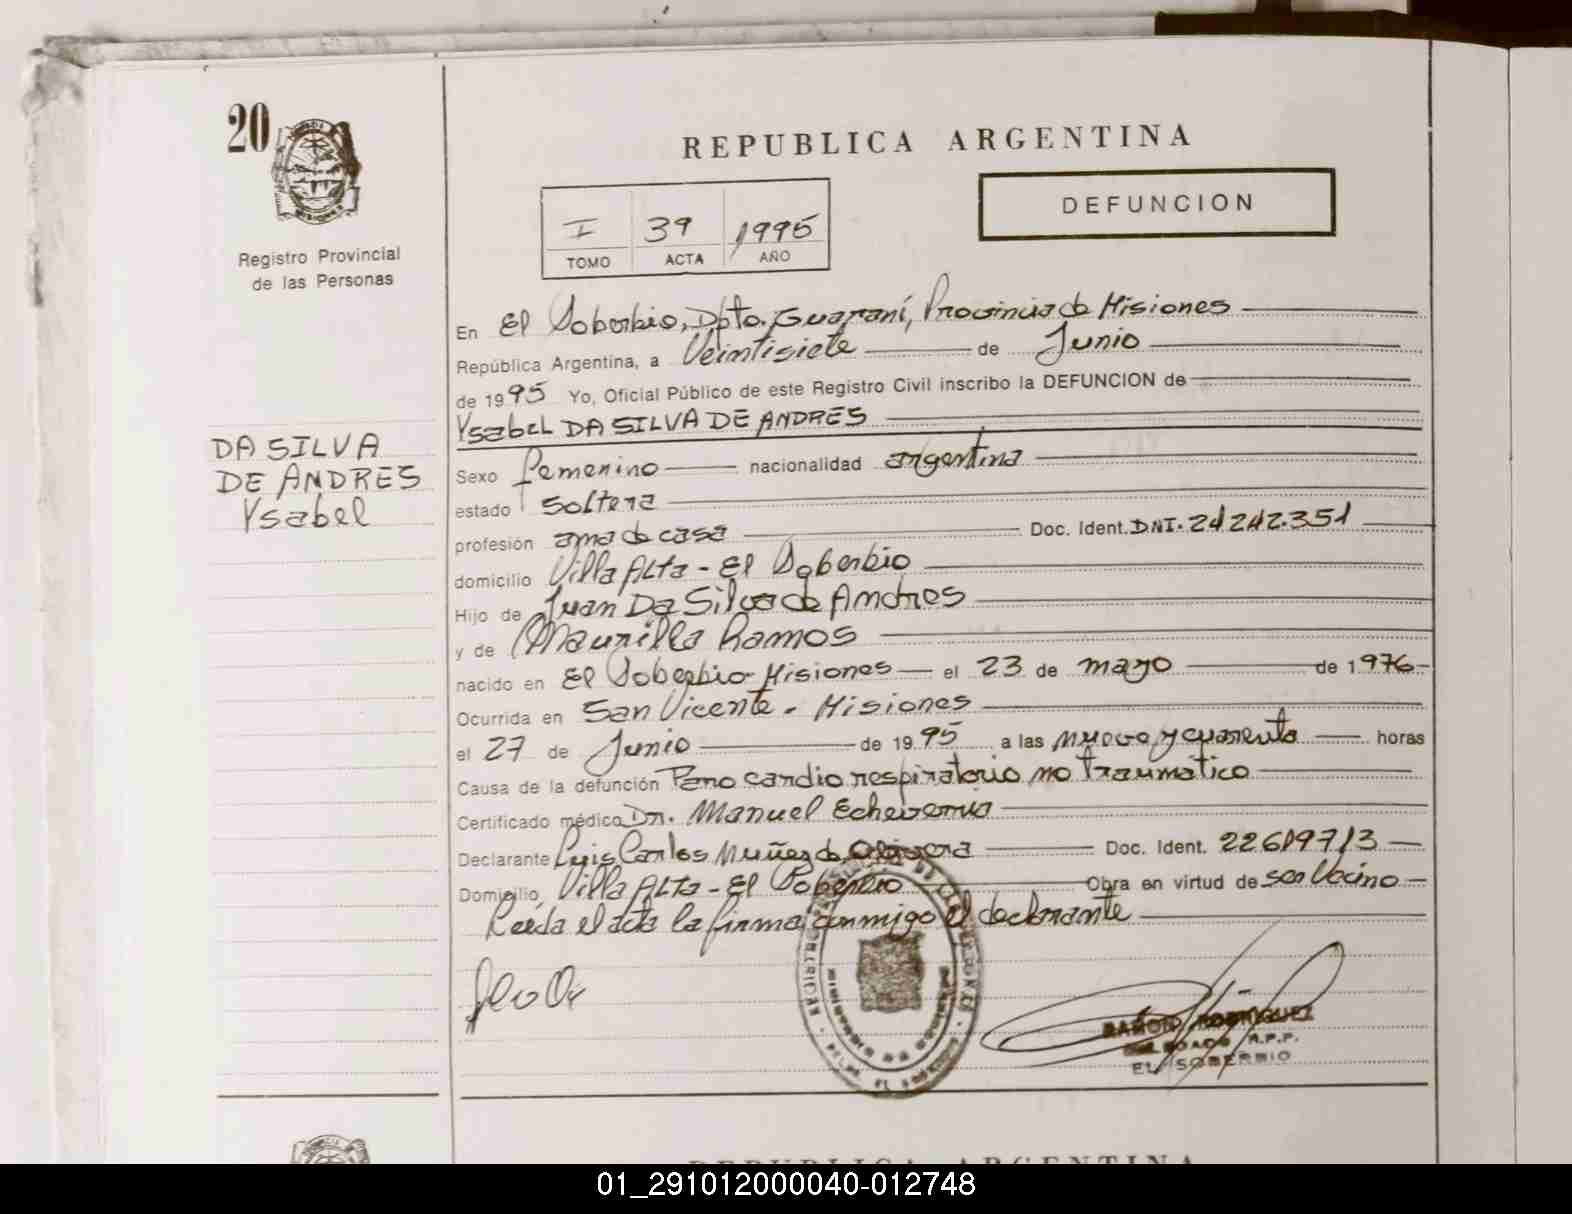 20
Registro Provincial
de las Personas
DA SILVA
DE ANDRES
Ysabel
REPUBLICA ARGENTINA
I 39 1995
TOMO ACTA AÑO
DEFUNCION
En El Soberbio, Dpto. Guaraní, Provincia de Misiones
República Argentina, a Veintisiete de Junio
de 1995 Yo, Oficial Público de este Registro Civil inscribo la DEFUNCION de
Ysabel DA SILVA DE ANDRES
Sexo femenino nacionalidad argentina
estado soltera
profesión ama de casa Doc. Ident. DNI. 24.242.351
domicilio Villa Alta - El Soberbio
Hijo de Juan Da Silva de Andres
y de Maurilla Ramos
nacido en El Soberbio - Misiones el 23 de mayo de 1976
Ocurrida en San Vicente - Misiones
el 27 de Junio de 1995 a las nueve y cuarenta horas
Causa de la defunción Paro cardio respiratorio no traumatico
Certificado médico Dr. Manuel Echeverria
Declarante Luis Carlos Muñez de Olivera Doc. Ident. 22619713
Domicilio Villa Alta - El Soberbio Obra en virtud de ser Vecino
Leída el acta la firma conmigo el declarante
RAMON RODRIGUEZ
DELEGADO R.P.P.
EL SOBERBIO
REPUBLICA ARGENTINA
01_291012000040-012748